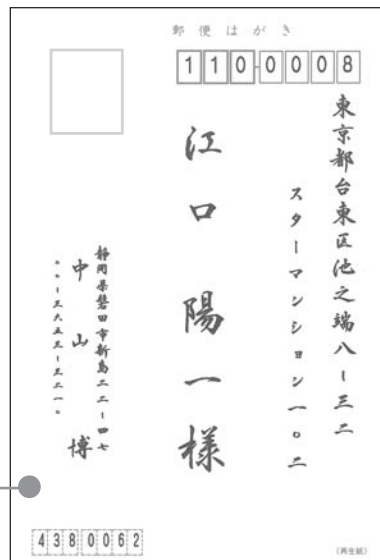 郵便はがき
110-0008
東京都台東区池之端八ー三二
スターマンション一〇二
江口陽一様
静岡県磐田市新島二二ー四七
中山 博
〇〇ー三六五三ー三二一〇
4380062
(再生紙)